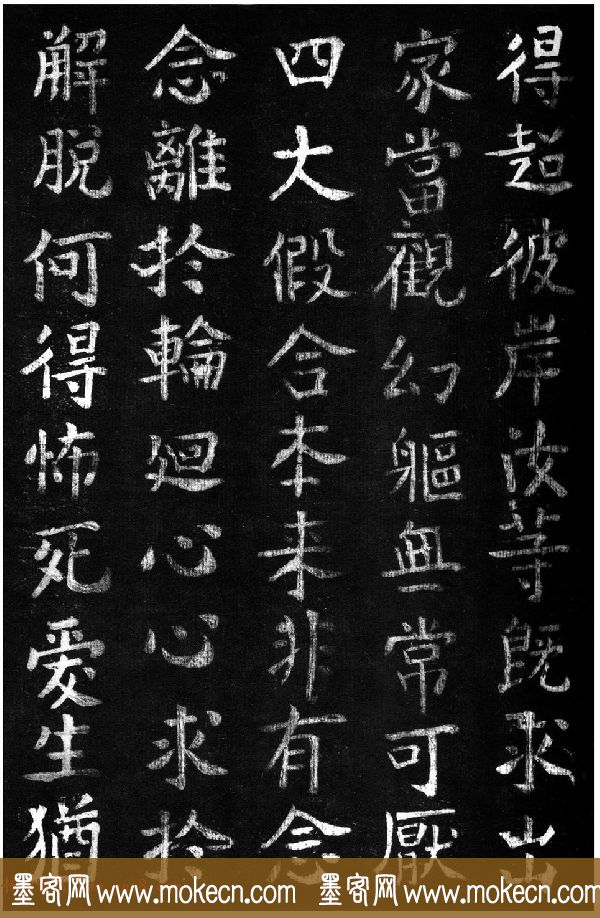 得超彼岸汝等既求出
家當觀幻軀無常可厭
四大假合本来非有念
念離於輪廻心心求於
解脫何得怖死爱生猶
墨客网 www.mokecn.com 墨客网 www.mokecn.com